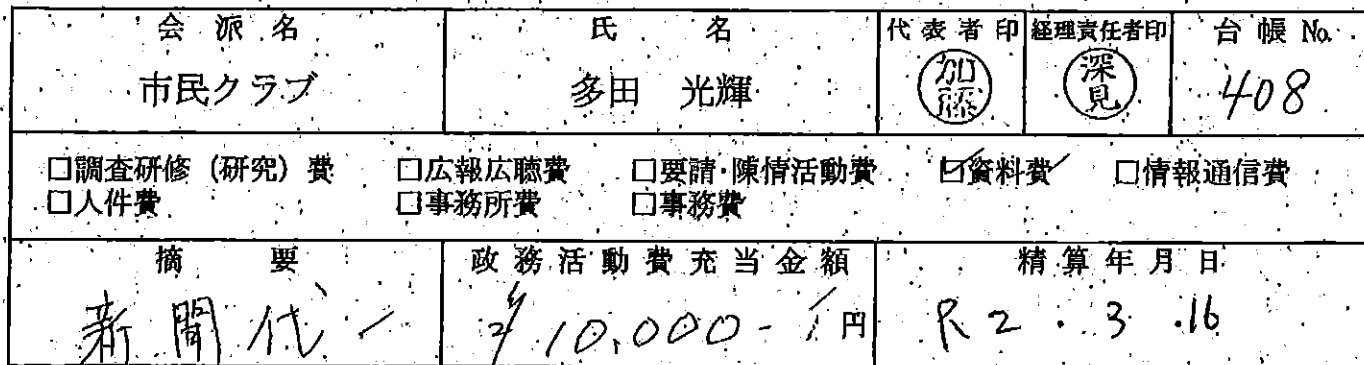 会派名 氏名 代表者印 経理責任者印 台帳No.
市民クラブ 多田 光輝 加藤 深見 408
□調査研修(研究)費 □広報広聴費 □要請・陳情活動費 ☑資料費 □情報通信費
□人件費 □事務所費 □事務費
摘要 政務活動費充当金額 精算年月日
新聞代 ¥10,000-円 R2.3.16